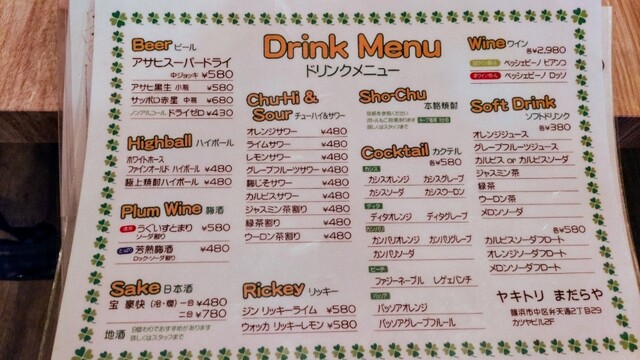 Drink Menu
ドリンクメニュー
Beer ビール
アサヒスーパードライ
中ジョッキ ¥580
アサヒ黒生 小瓶 ¥580
サッポロ赤星 中瓶 ¥680
ノンアルコール ドライゼロ ¥430
Highball ハイボール
ホワイトホース
ファインオールド ハイボール ¥480
極上焼酎ハイボール ¥480
Plum Wine 梅酒
うぐいすとまり ¥580
ソーダ割り
芳熟梅酒 ¥480
ロック・ソーダ割り
Sake 日本酒
宝 豪快 (冷・燗) 一合 ¥480
二合 ¥780
地酒 日替わりでおすすめがあります
詳しくはスタッフまで
Chu-Hi &
Sour チューハイ&サワー
オレンジサワー ¥480
ライムサワー ¥480
レモンサワー ¥480
グレープフルーツサワー ¥480
梅じそサワー ¥480
カルピスサワー ¥480
ジャスミン茶割り ¥480
緑茶割り ¥480
ウーロン茶割り ¥480
Rickey リッキー
ジン リッキーライム ¥580
ウォッカ リッキーレモン ¥580
Sho-Chu 本格焼酎
詳しくはスタッフまで
Cocktail カクテル
各¥580
カシス
カシスオレンジ カシスグレープ
カシスソーダ カシスウーロン
ディタ
ディタオレンジ ディタグレープ
カンパリ
カンパリオレンジ カンパリグレープ
カンパリソーダ
ピーチ
ファジーネーブル レゲエパンチ
パッソア
パッソアオレンジ
パッソアグレープフルール
Wine ワイン
各¥2,980
ペッシェビーノ ビアンコ
ペッシェビーノ ロッソ
Soft Drink
ソフトドリンク
各¥380
オレンジジュース
グレープフルーツジュース
カルピス or カルピスソーダ
ジャスミン茶
緑茶
ウーロン茶
メロンソーダ
各¥580
カルピスソーダフロート
オレンジソーダフロート
メロンソーダフロート
ヤキトリ まだらや
横浜市中区弁天通2丁目29
カツヤビル2F